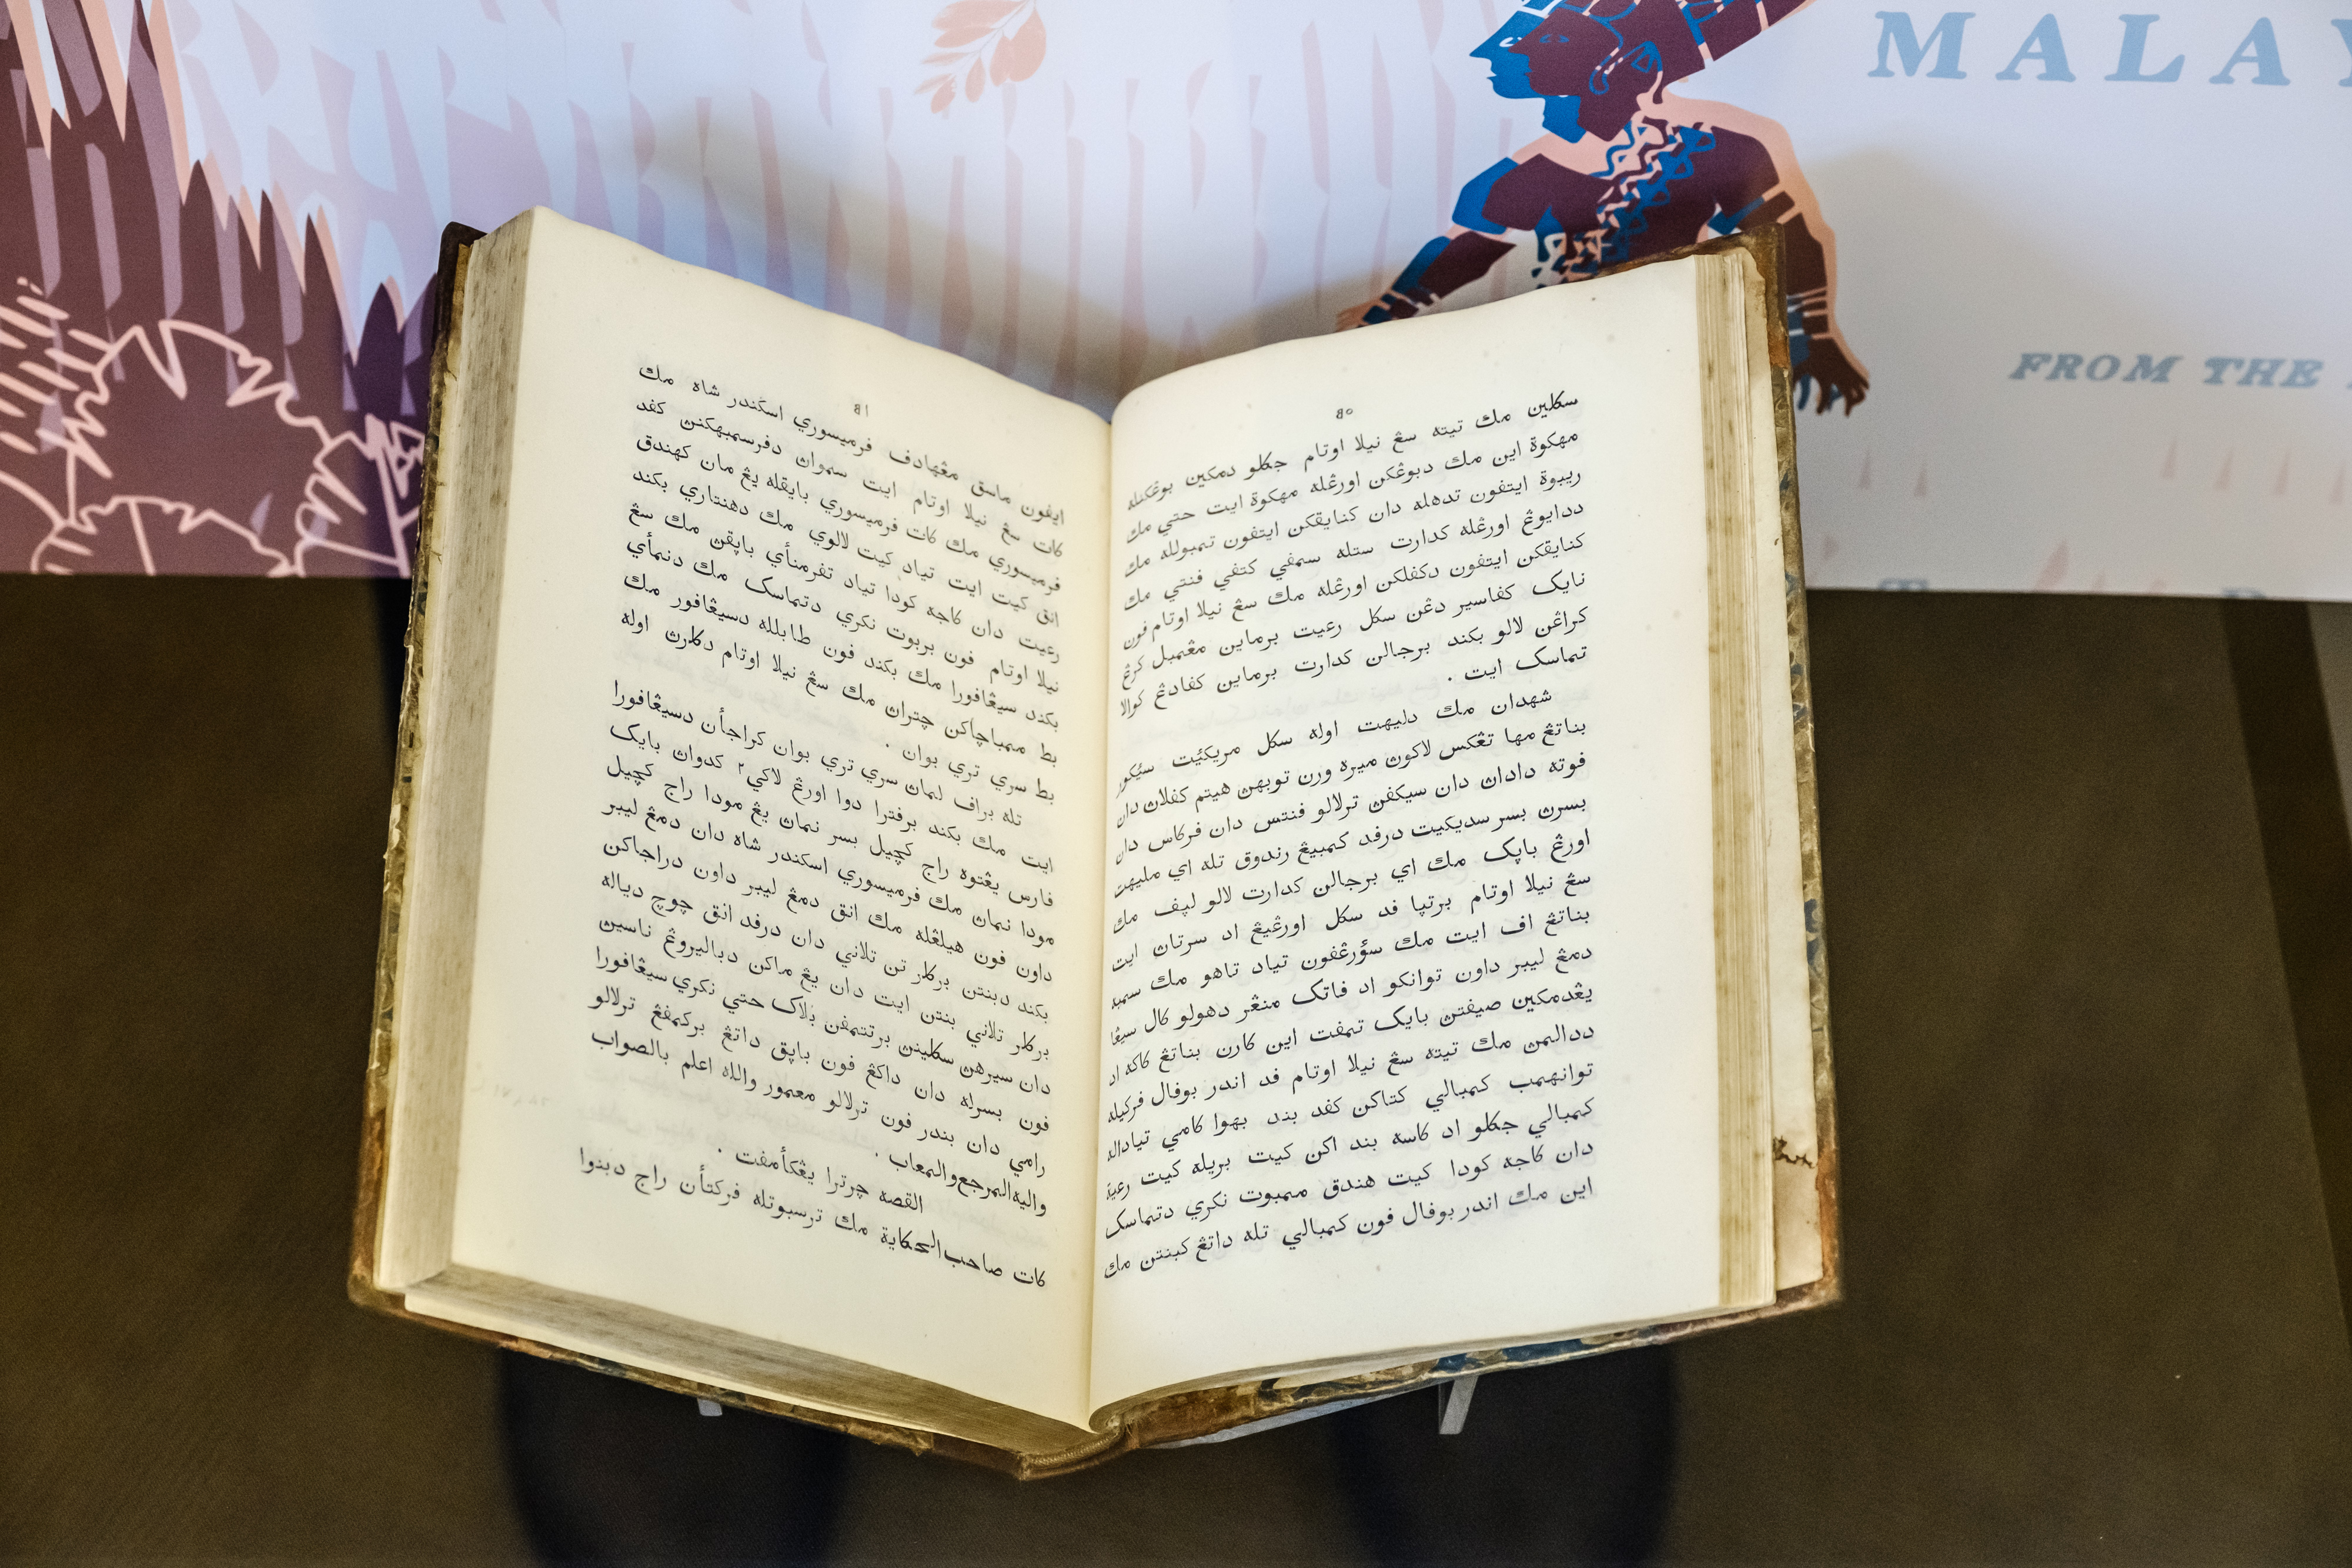 MALAY
FROM THE
٤٠
سكلين مك تيته سڠ نيلا اوتام جكلو دمكين بوڠكنله
مهكوة اين مك دبوڠكن اورڠله مهكوة ايت حتي مك
ريبوة ايتفون تدهله دان كنايقكن ايتفون تمبولله مك
ددايوڠ اورڠله كدارت ستله سمفي كتفي فنتي مك
كنايقكن ايتفون دكفلكن اورڠله مك سڠ نيلا اوتام فون
نايک كفاسير دڠن سكل رعيت برماين مڠمبل كرڠ
كراڠن لالو بكند برجالن كدارت برماين كفادڠ كوالا
تماسک ايت .
شهدان مك دليهت اوله سكل مريكئيت سئيكور
بناتڠ مها تڠكس لاكون ميره ورن توبهن هيتم كفلاڽ دان
فوته داداڽ دان سيكفن ترلالو فنتس دان فركاس دان
بسرڽ بسر سديكيت درفد كمبيڠ رندوق تله اي مليهت
اورڠ باپک مك اي برجالن كدارت لالو لپف مك
سڠ نيلا اوتام برتپا فد سكل اورڠيڠ اد سرتاڽ ايت
بناتڠ اف ايت مك سؤرڠفون تياد تاهو مك سمبه
دمڠ ليبر داون توانكو اد فاتک منڠر دهولو كال سيڠا
يڠدمكين صيفتن بايک تمفت اين كارن بناتڠ كاكه اد
ددالمن مك تيته سڠ نيلا اوتام فد اندر بوفال فركيله
توانهمب كمبالي كتاكن كفد بند بهوا كامي تيادله
كمبالي جكلو اد كاسه بند اكن كيت بريله كيت رعية
دان كاجه كودا كيت هندق ممبوت نكري دتماسک
اين مك اندر بوفال فون كمبالي تله داتڠ كبنتن مك
ايفون ماسق مڠهادف فرميسوري اسكندر شاه مك
كات سڠ نيلا اوتام ايت سمواڽ دفرسمبهكنڽ كفد
فرميسوري مك كات فرميسوري بايقله يڠ مان كهندق
انق كيت ايت تياد كيت لالوي مك دهنتاري بكند
رعيت دان كاجه كودا تياد تفرمنأي باپقڽ مك سڠ
نيلا اوتام فون بربوت نكري دتماسک مك دنمأي
بكند سيڠافورا مك بكند فون طابلله دسيڠافور مك
بط ممباچاكن چتراڽ مك سڠ نيلا اوتام دكلرڽ اوله
بط سري تري بوان .
تله براف لمان سري تري بوان كراجأن دسيڠافورا
ايت مك بكند برفترا دوا اورڠ لاكي٢ كدواڽ بايک
فارس يڠتوه راج كچيل بسر نمان يڠ مودا راج كچيل
مودا نمان مك فرميسوري اسكندر شاه دان دمڠ ليبر
داون فون هيلڠله مك انق دمڠ ليبر داون دراجاكن
بكند دبنتن بركلر تن تلاني دان درفد انق چوچ دياله
بركلر تلاني بنتن ايت دان يڠ ماكن دباليروڠ ناسين
دان سيرهن سكلينن برتتمفن بلاک حتي نكري سيڠافورا
فون بسرله دان داكڠ فون باپق داتڠ بركمفڠ ترلالو
رامي دان بندر فون ترلالو معمور والله اعلم بالصواب
واليه المرجع والمعاب .
القصه چرترا يڠكأمفت .
كات صاحب الحكاية مك ترسبوتله فركتأن راج دبنوا